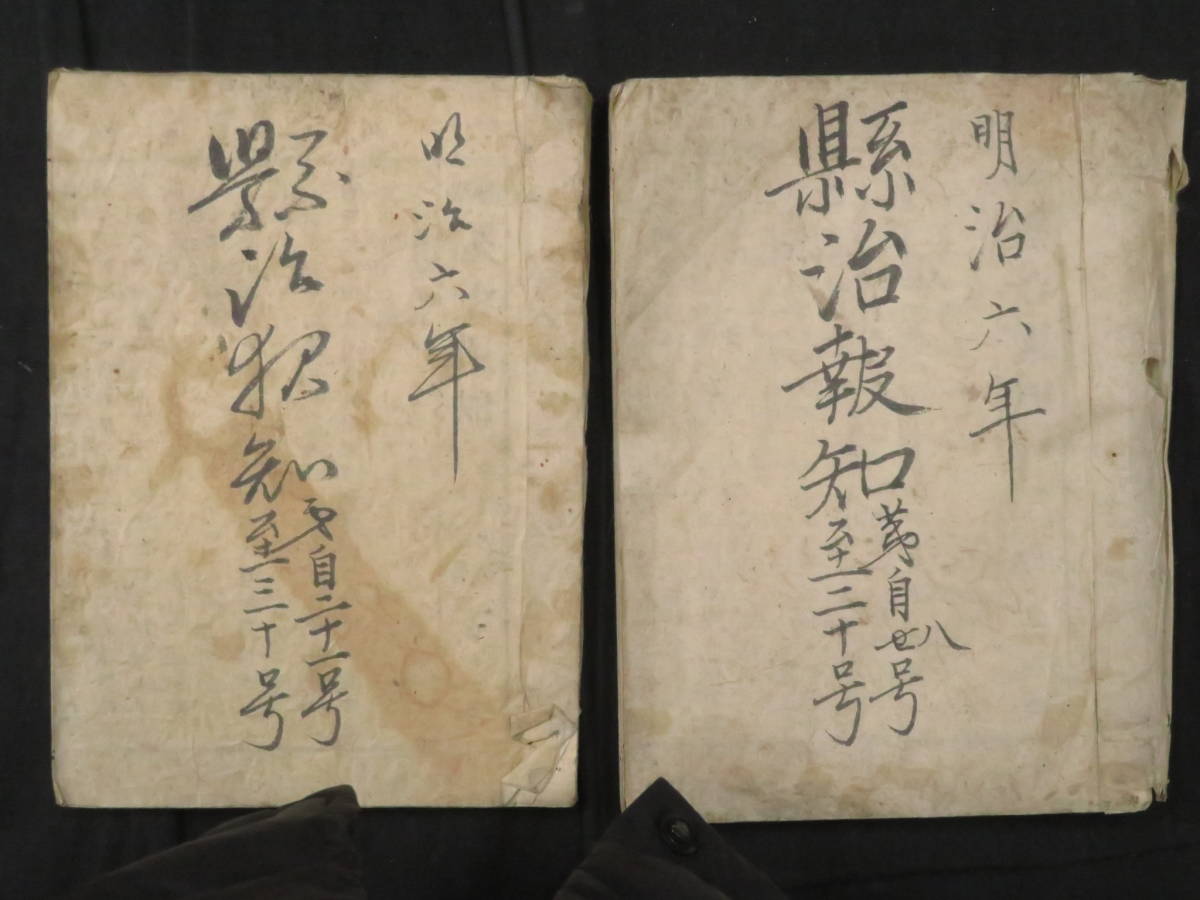 明治六年
縣治報知
第自廿八号
至二十号
明治六年
縣治報知
第自二十一号
至三十号